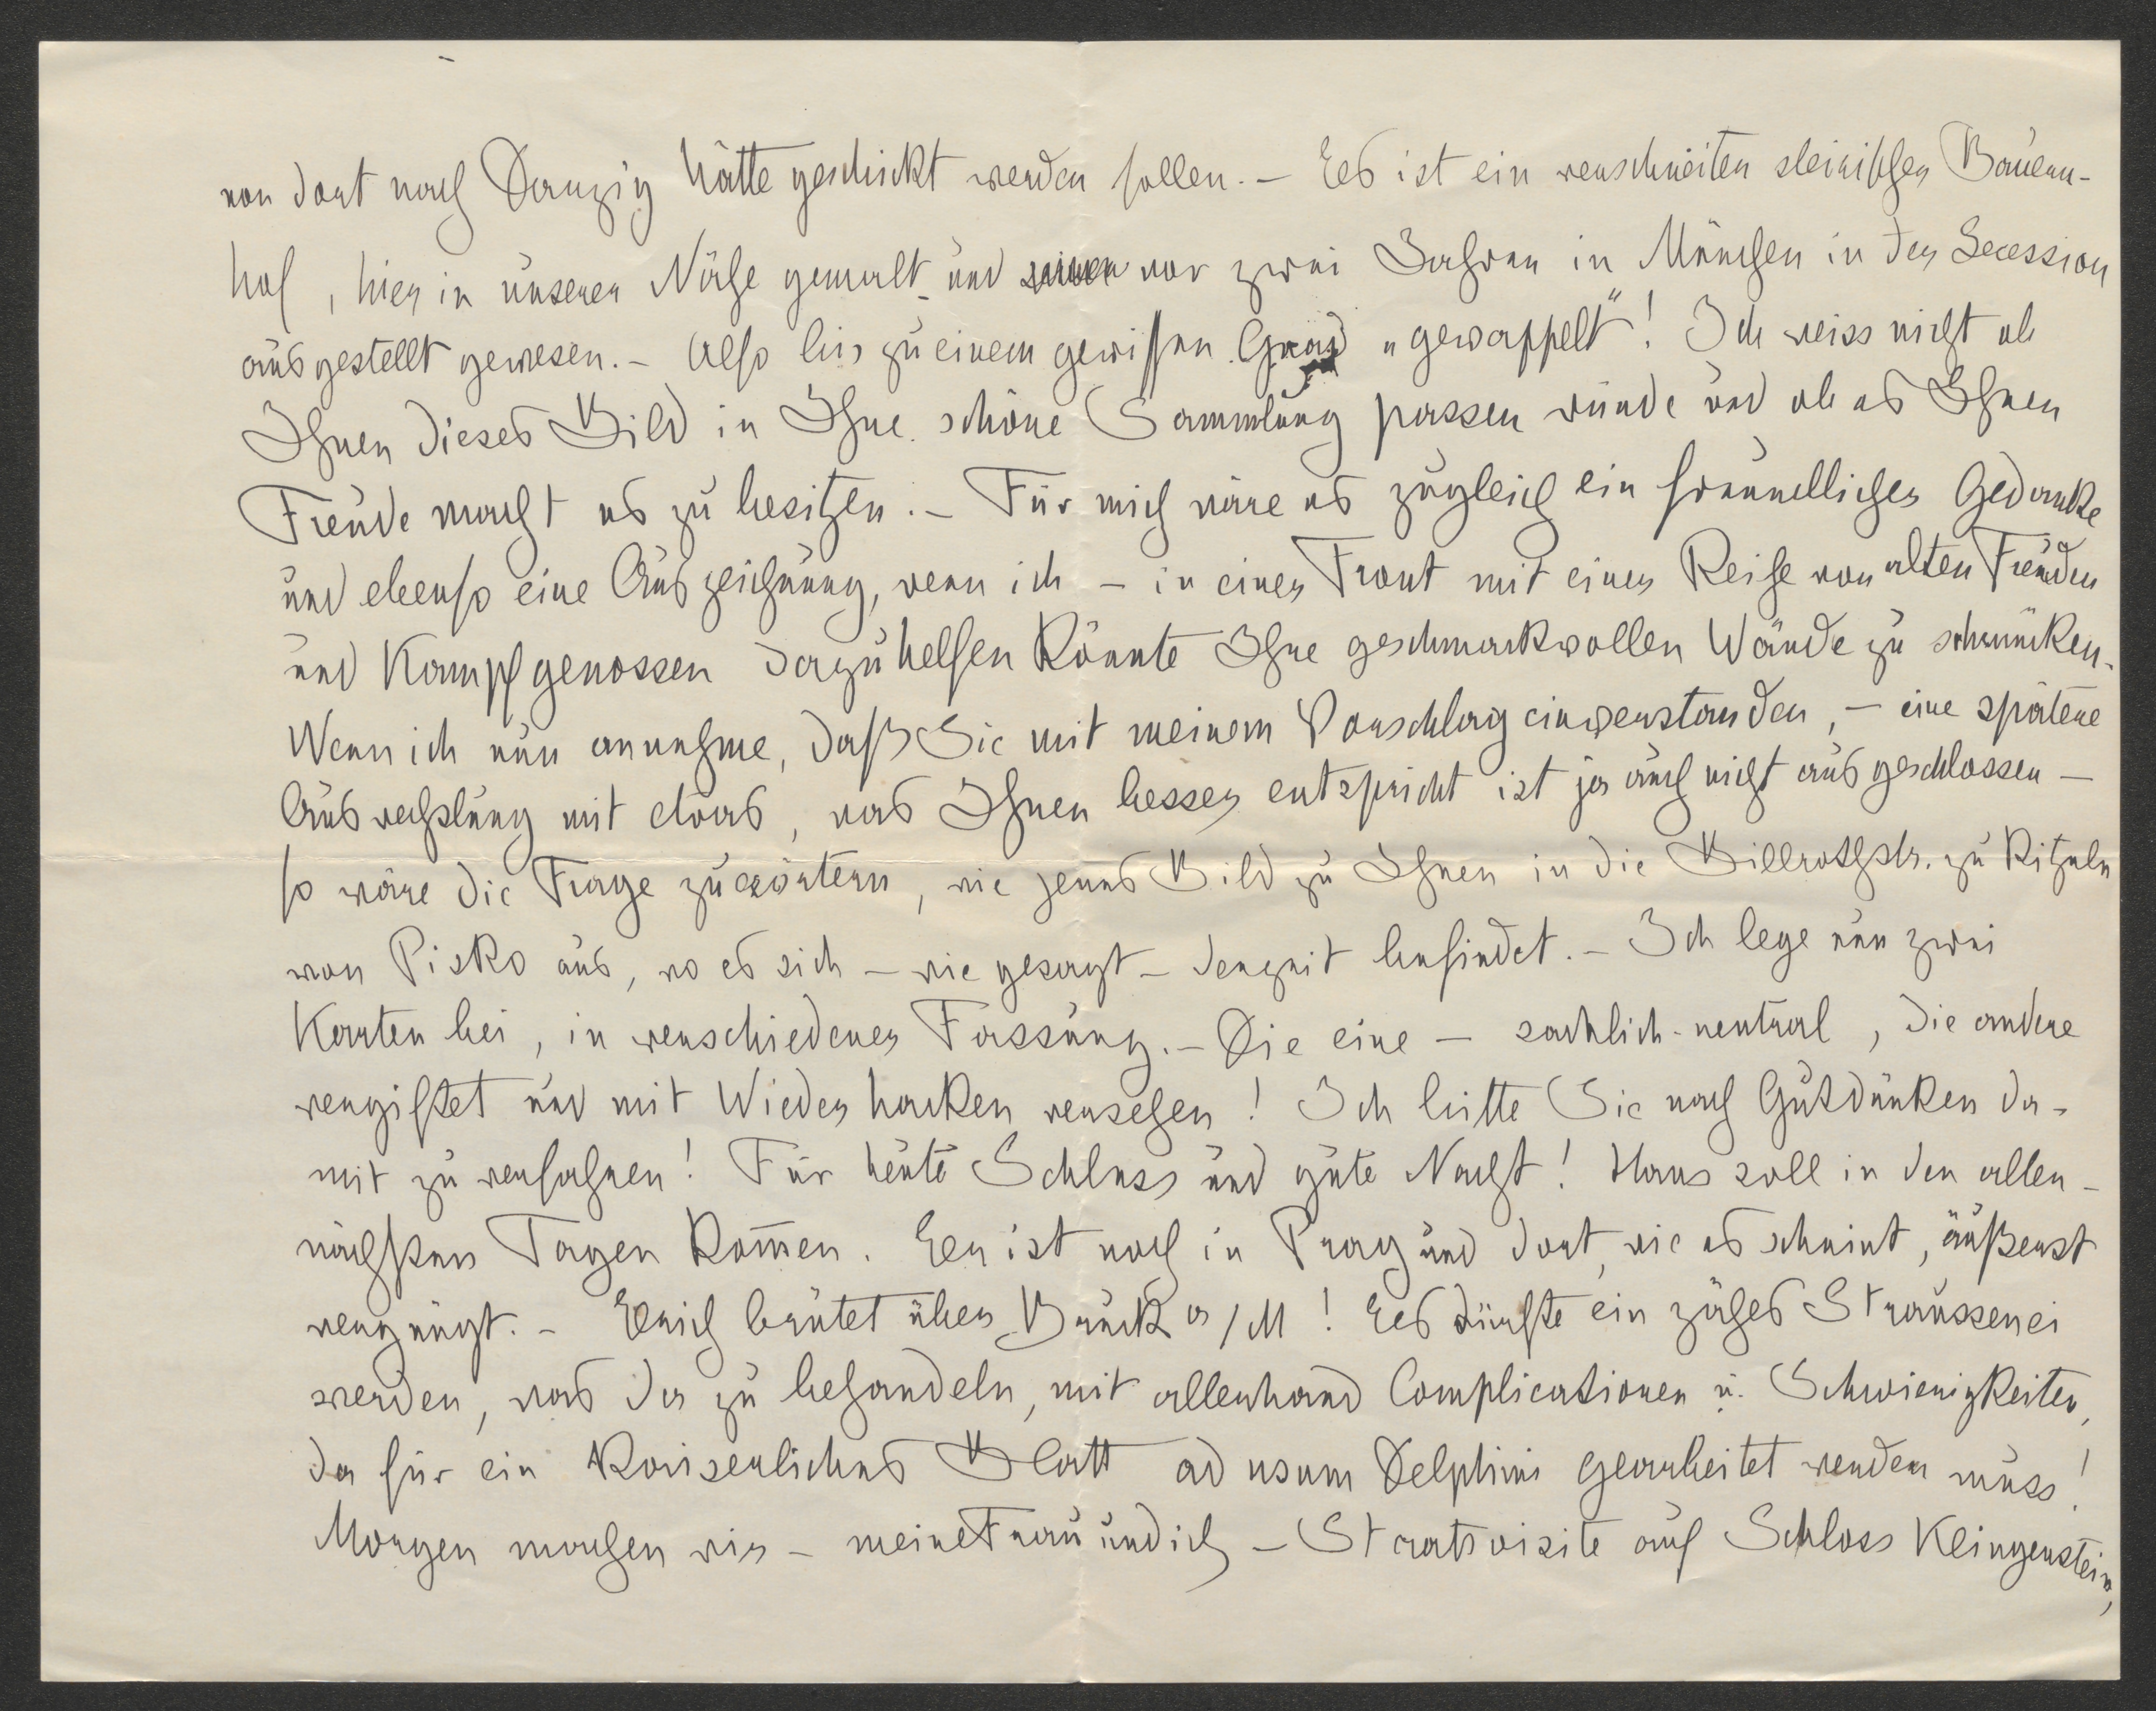 von dort nach Danzig hätte geschickt werden sollen. – Es ist ein verschneiter steirischer Bauern-
hof, hier in unserer Nähe gemalt und vor zwei Jahren in München in der Secession
ausgestellt gewesen. – Also bis zu einem gewissen Grad „gewappelt"! Ich weiss nicht ob
Ihnen dieses Bild in Ihre schöne Sammlung passen würde und ob es Ihnen
Freude macht es zu besitzen. – Für mich wäre es zugleich ein freundlicher Gedanke
und ebenso eine Auszeichnung, wenn ich – in einer Front mit einer Reihe von alten Freunden
und Kampfgenossen dazu helfen könnte Ihre geschmackvollen Wände zu schmücken.
Wenn ich nun annehme, daß Sie mit meinem Vorschlag einverstanden, – eine spätere
Auswechslung mit etwas, was Ihnen besser entspricht ist ja auch nicht ausgeschlossen –
so wäre die Frage zu erörtern, wie jenes Bild zu Ihnen in die Billrothstr. zu kitzeln
von Pisko aus, wo es sich – wie gesagt – derzeit befindet. – Ich lege nun zwei
Karten bei, in verschiedener Fassung. – Die eine – sachlich-neutral, die andere
vergiftet und mit Wiederhacken versehen! Ich bitte Sie nach Gutdünken da-
mit zu verfahren! Für heute Schluss und gute Nacht! Hans soll in den aller-
nächsten Tagen kom̅en. Er ist noch in Prag und dort, wie es scheint, äußerst
vergnügt. – Erich brütet über Bruck a/M! Es dürfte ein zähes Straussenei
werden, was da zu behandeln, mit allerhand Complicationen u. Schwierigkeiten,
da für ein Kaiserliches Blatt ad usum Delphini gearbeitet werden muss!
Morgen machen wir – meine Frau und ich – Staatsvisite auf Schloss Klingenstein,